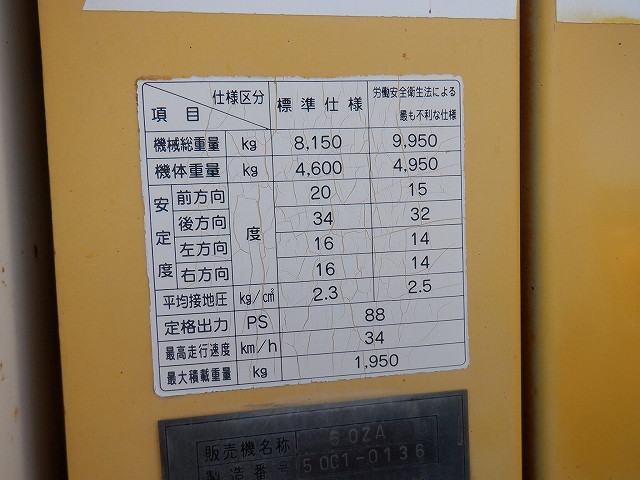 仕様区分
項目
標準仕様
労働安全衛生法による
最も不利な仕様
機械総重量 kg 8,150 9,950
機体重量 kg 4,600 4,950
安定度 度
前方向 20 15
後方向 34 32
左方向 16 14
右方向 16 14
平均接地圧 kg/c㎡ 2.3 2.5
定格出力 PS 88
最高走行速度 km/h 34
最大積載重量 kg 1,950
販売機名称 602A
製造番号 50C1-0136